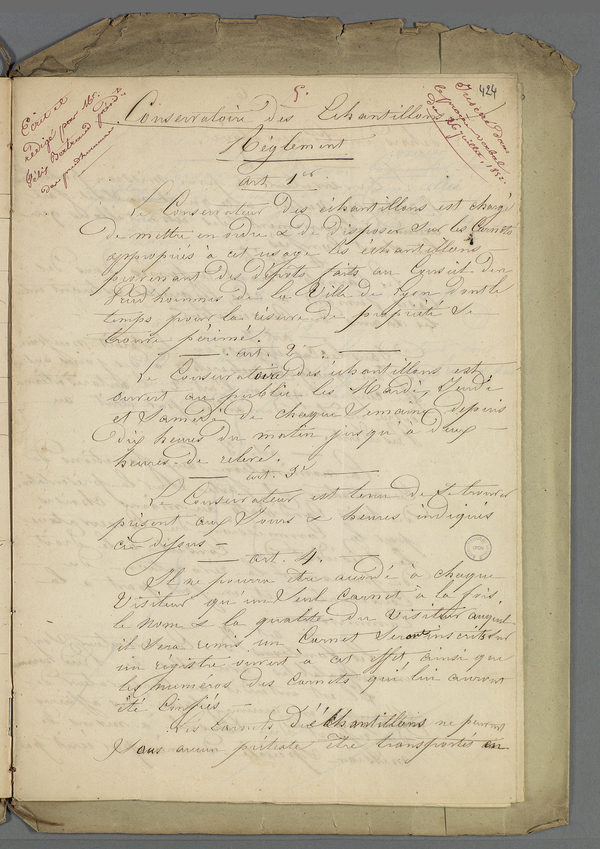 5.
424
Ecrit et
rédigé par Mr.
Félix Bertrand présidt
des prudhommes
Inséré dans
le procès verbal
du 26 juillet, 1832.
Conservatoire des Echantillons
Réglement
art. 1er
Le Conservateur des échantillons est chargé
de mettre en ordre & de disposer sur les Carnets
appropriés à cet usage les échantillons
provenant des dépôts faits au Conseil des
Prud'hommes de la Ville de Lyon dont le
temps pour la réserve de propriété se
trouve périmé.
art. 2
Le Conservatoire des échantillons est
ouvert au public les Mardi, Jeudi
et Samedi de chaque Semaine depuis
dix heures du matin jusqu'à deux
heures de relevé.
art. 3e
Le Conservateur est tenu de se trouver
présent aux Jours & heures indiqués
ci dessus –
art. 4.
Il ne pourra être accordé à chaque
Visiteur qu'un Seul Carnet à la fois,
le nom & la qualité du Visiteur auquel
il sera remis un Carnet seront inscrits sur
un régistre ouvert à cet effet ainsi que
les numéros des Carnets qui lui auront
été Confiés –
Les Carnets D'échantillons ne peuvent
Sous aucun prétexte être transportés en